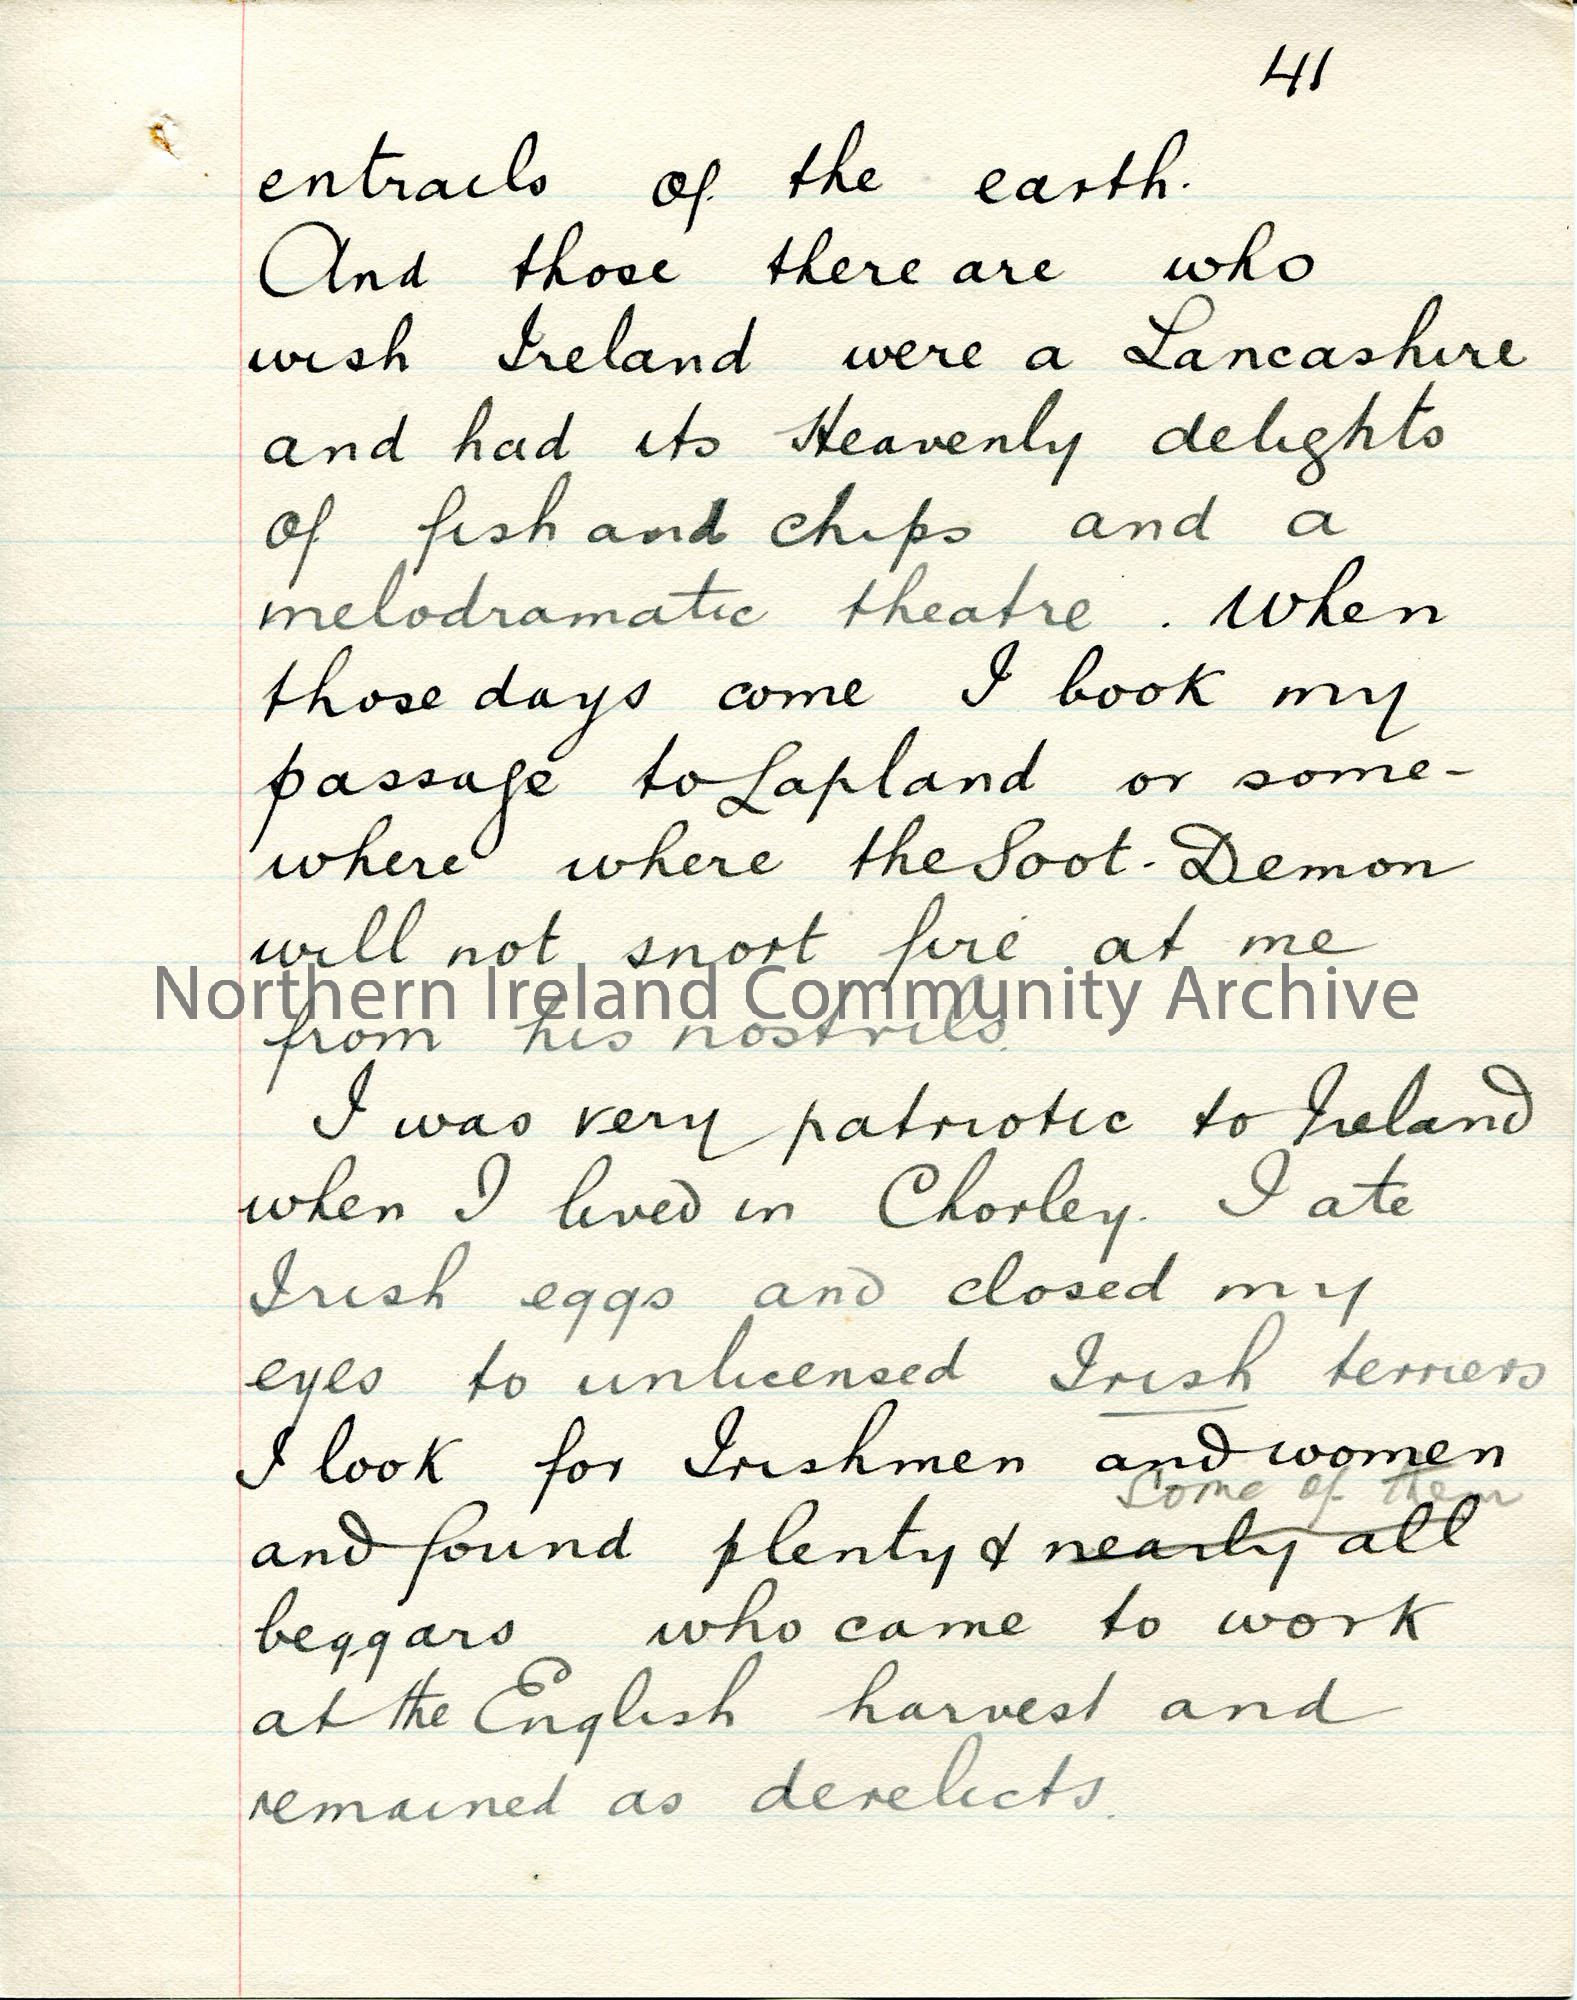 41
entrails of the earth.
And those there are who
wish Ireland were a Lancashire
and had its Heavenly delights
of fish and chips and a
melodramatic theatre. When
those days come I book my
passage to Lapland or some-
where where the Soot-Demon
will not snort fire at me
Northern Ireland Community Archive
from his nostrils.
I was very patriotic to Ireland
when I lived in Chorley. I ate
Irish eggs and closed my
eyes to unlicensed Irish terriers
I look for Irishmen and women
some of them
and found plenty & nearly all
beggars who came to work
at the English harvest and
remained as derelicts.